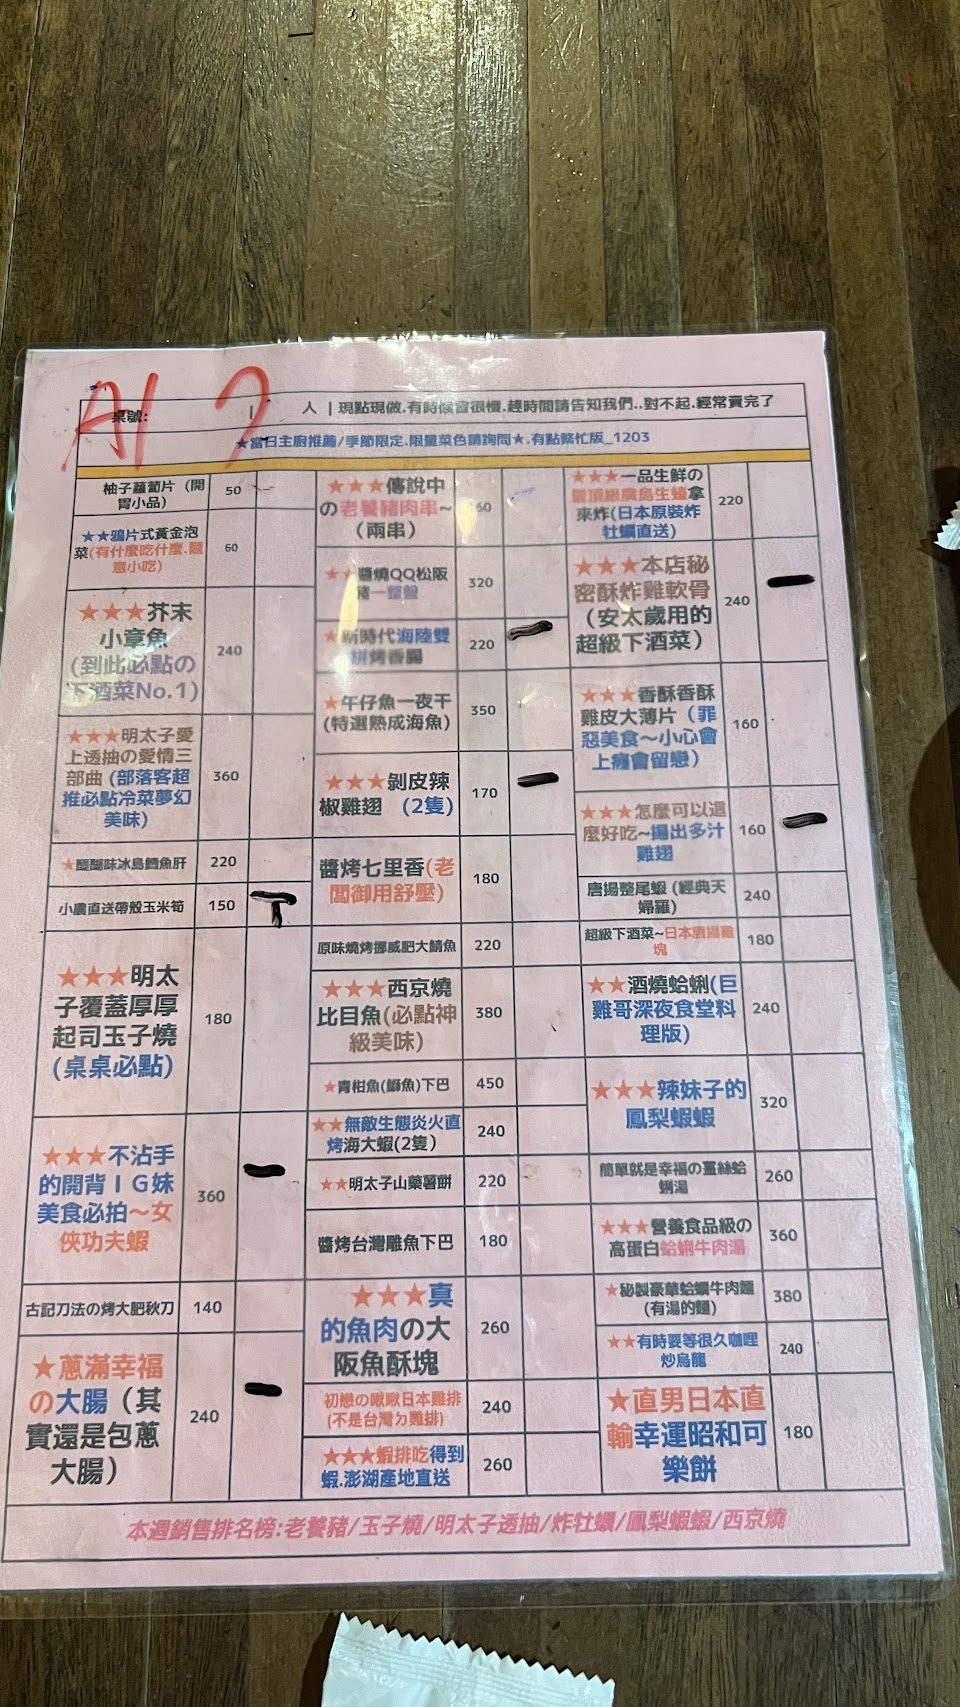 A1 2
桌號: | 人 | 現點現做.有時候會很慢.趕時間請告知我們..對不起.經常賣完了
★當日主廚推薦/季節限定.限量菜色請詢問★.有點繁忙版_1203
柚子蘿蔔片（開
胃小品）
50
★★鴉片式黃金泡
菜(有什麼吃什麼、隨
意小吃)
60
★★★芥末
小章魚
(到此必點の
下酒菜No.1)
240
★★★明太子愛
上透抽の愛情三
部曲 (部落客超
推必點冷菜夢幻
美味)
360
★醍醐味冰島鱈魚肝
220
小農直送帶殼玉米筍
150
T
★★★明太
子覆蓋厚厚
起司玉子燒
(桌桌必點)
180
★★★不沾手
的開背ＩＧ妹
美食必拍～女
俠功夫蝦
360
古記刀法の烤大肥秋刀
140
★蔥滿幸福
の大腸（其
實還是包蔥
大腸）
240
★★★傳說中
の老饕豬肉串~
（兩串）
60
★★醬燒QQ松阪
豬一整盤
320
★新時代海陸雙
拼烤香腸
220
★午仔魚一夜干
(特選熟成海魚)
350
★★★剝皮辣
椒雞翅 (2隻)
170
醬烤七里香(老
闆御用舒壓)
180
原味燒烤挪威肥大鯖魚
220
★★★西京燒
比目魚(必點神
級美味)
380
★青柑魚(鰤魚)下巴
450
★★無敵生態炎火直
烤海大蝦(2隻)
240
★★明太子山藥薯餅
220
醬烤台灣雕魚下巴
180
★★★真
的魚肉の大
阪魚酥塊
260
初戀の啾啾日本雞排
(不是台灣ㄉ雞排)
240
★★★蝦排吃得到
蝦.澎湖產地直送
260
★★★一品生鮮の
最頂級廣島生蠔拿
來炸(日本原裝炸
牡蠣直送)
220
★★★本店秘
密酥炸雞軟骨
（安太歲用的
超級下酒菜）
240
★★★香酥香酥
雞皮大薄片（罪
惡美食～小心會
上癮會留戀）
160
★★★怎麼可以這
麼好吃~揚出多汁
雞翅
160
唐揚整尾蝦 (經典天
婦羅)
240
超級下酒菜~日本唐揚雞
塊
180
★★酒燒蛤蜊(巨
雞哥深夜食堂料
理版)
240
★★★辣妹子的
鳳梨蝦蝦
320
簡單就是幸福の薑絲蛤
蜊湯
260
★★★營養食品級の
高蛋白蛤蜊牛肉湯
360
★秘製豪華蛤蠣牛肉麵
(有湯的麵)
380
★★有時要等很久咖哩
炒烏龍
240
★直男日本直
輸幸運昭和可
樂餅
180
本週銷售排名榜:老饕豬/玉子燒/明太子透抽/炸牡蠣/鳳梨蝦蝦/西京燒